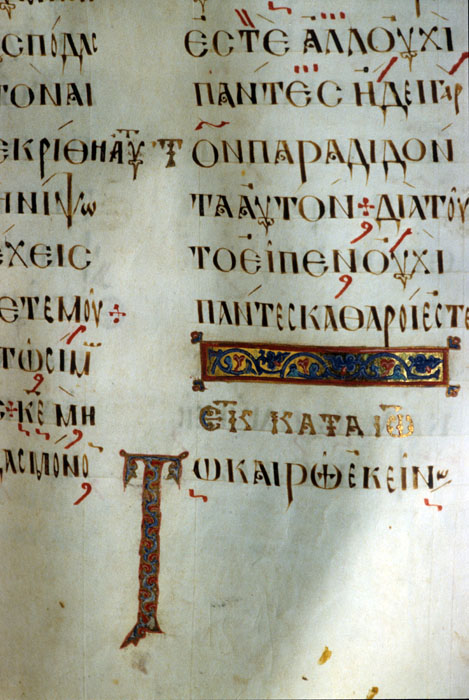 ϹΠΟΔΑϹ
ΤΟΝΑΙ
ΕΚΡΙΘΗΑΥΤ
ΗΝΙΨΩ
ΕΧΕΙϹ
ΕΤΕΜΟΥ+
ΤΩϹΙΜ
Ϲ+ΚΕΜΗ
ΕϹΤΕΑΛΛΟΥΧΙ
ΠΑΝΤΕϹΗΔΕΙΓΑΡ
ΤΟΝΠΑΡΑΔΙΔΟΝ
ΤΑΑΥΤΟΝ+ΔΙΑΤΟΥ
ΤΟΕΙΠΕΝΟΥΧΙ
ΠΑΝΤΕϹΚΑΘΑΡΟΙΕϹΤΕ
ΕΚ ΚΑΤΑ ΙΩ
ΤΩΚΑΙΡΩΕΚΕΙΝΩ